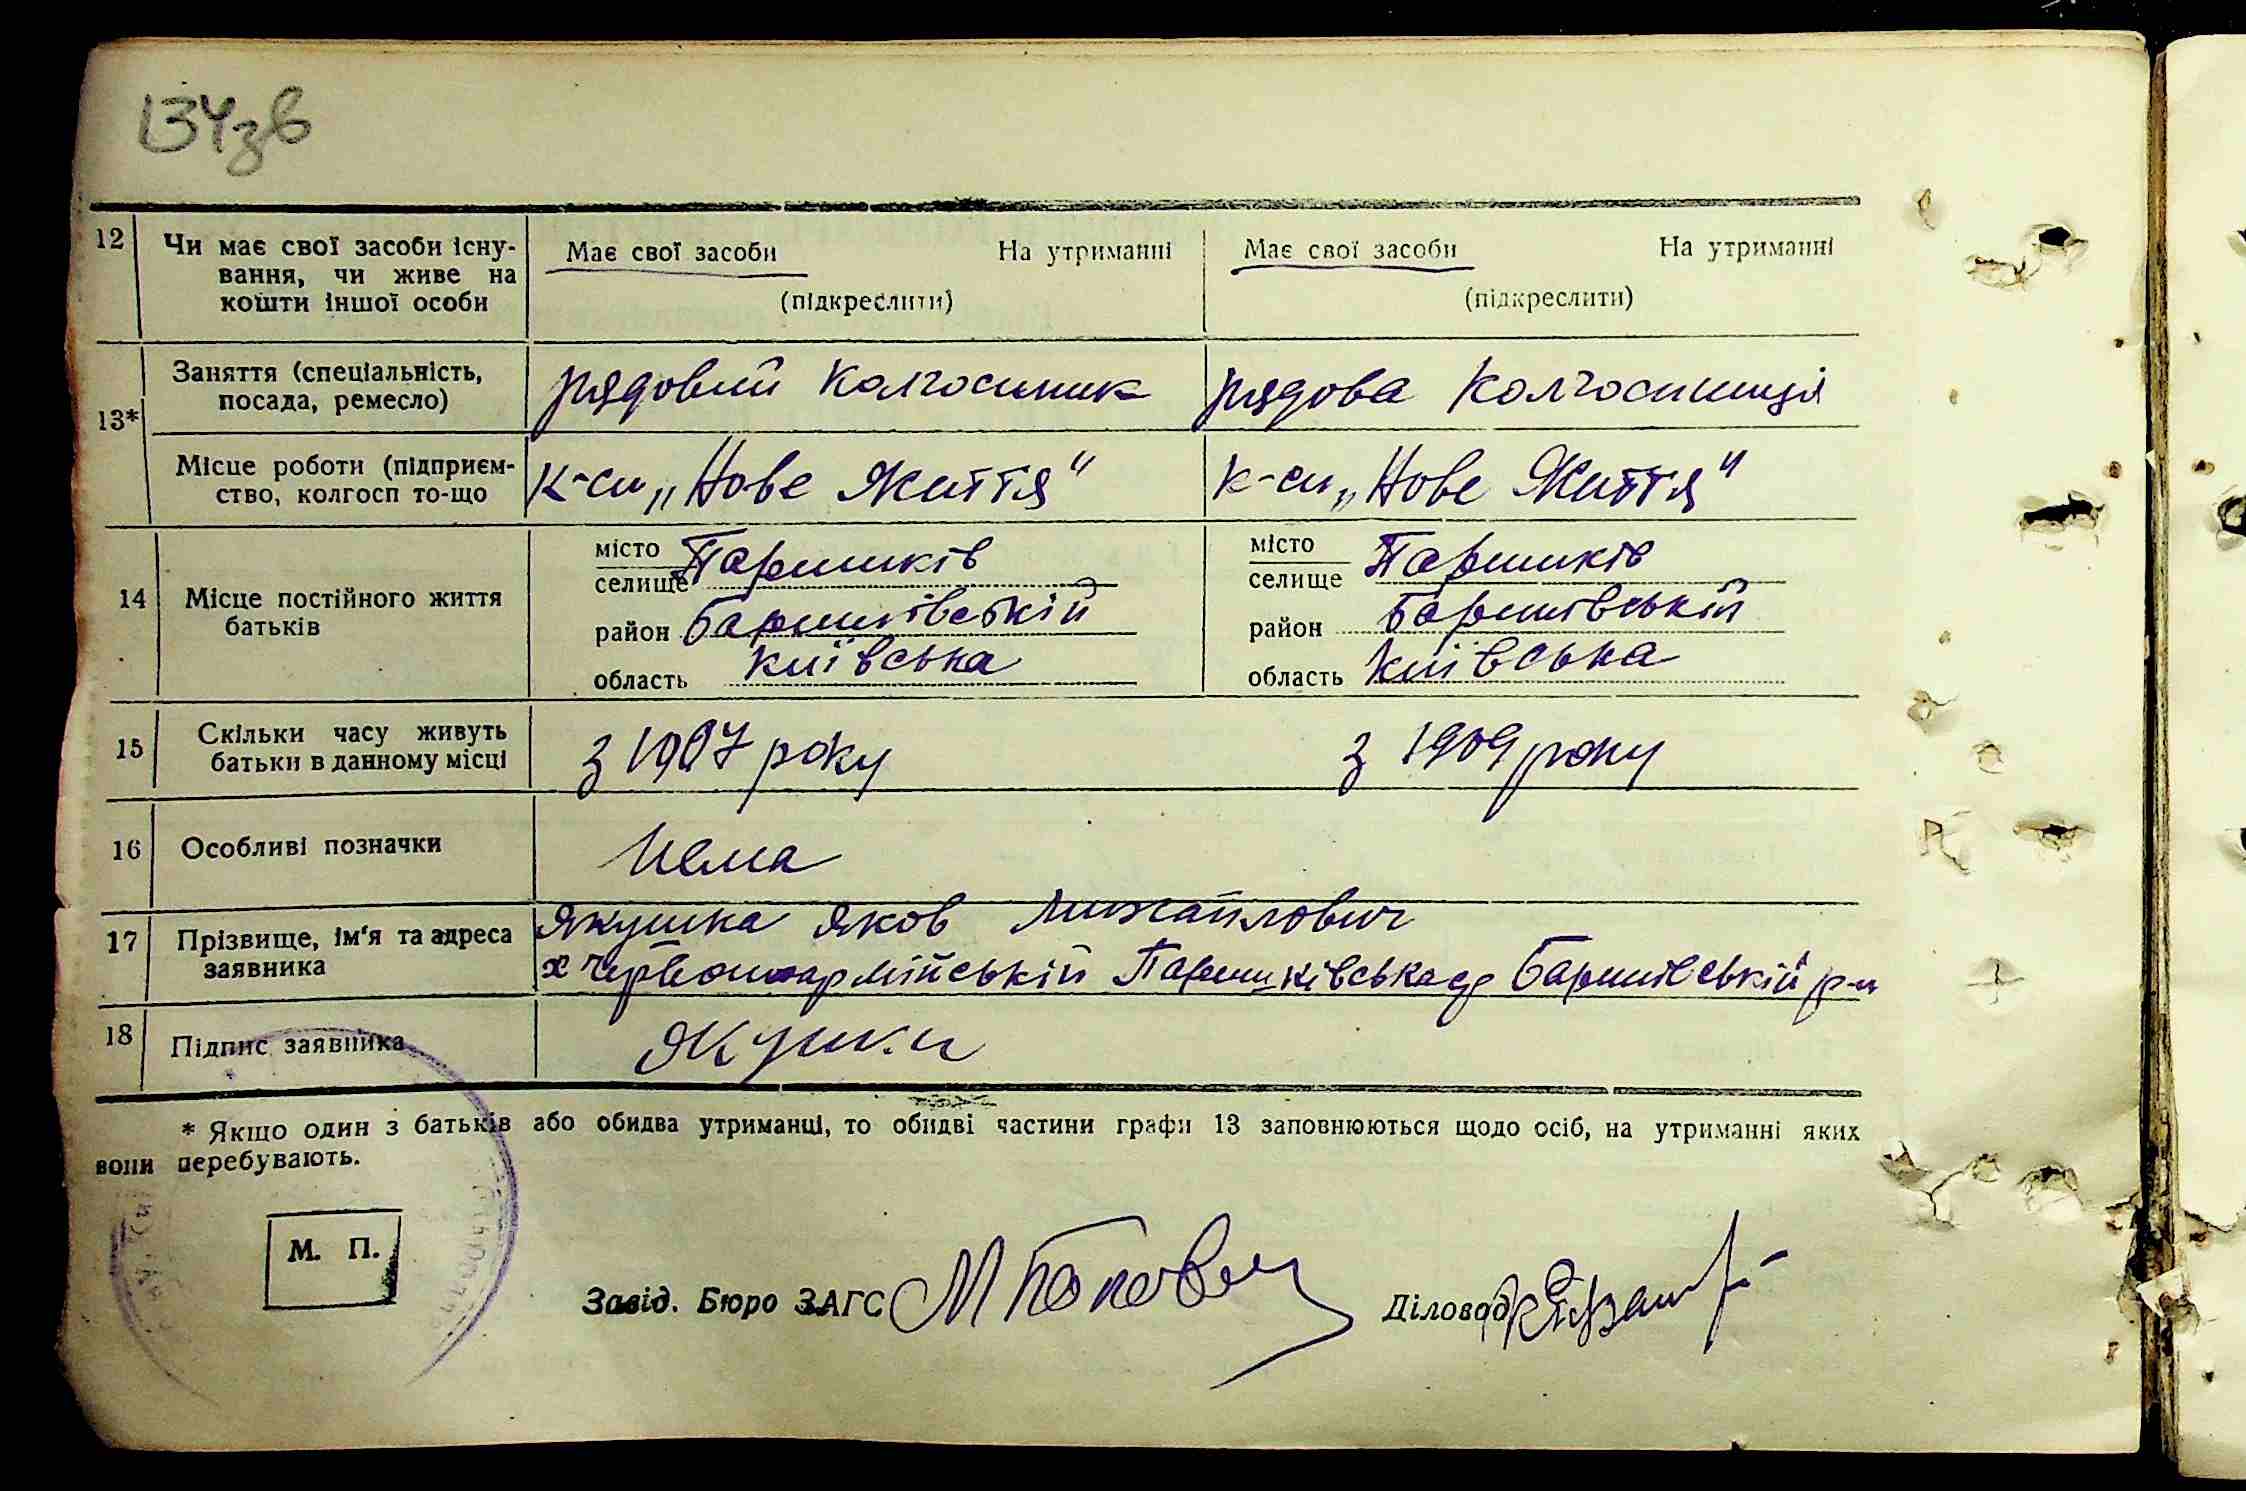 134зв
12 Чи має свої засоби існу-
вання, чи живе на
кошти іншої особи
Має свої засоби На утриманні
(підкреслити)
Має свої засоби На утриманні
(підкреслити)
13*
Заняття (спеціальність,
посада, ремесло)
рядовий колгоспник
рядова колгоспниця
Місце роботи (підприєм-
ство, колгосп то-що
к-сп „Нове Життя"
к-сп „Нове Життя"
14 Місце постійного життя
батьків
місто
селище Паришків
район Баришівській
область київська
місто
селище Паришків
район Баришівській
область київська
15 Скільки часу живуть
батьки в данному місці
з 1907 року
з 1909 року
16 Особливі позначки
Нема
17 Прізвище, ім'я та адреса
заявника
Якушка Яков Михайлович
х Червоноармійській Паришківська Баришівській р-н
18 Підпис заявника
* Якщо один з батьків або обидва утриманці, то обидві частини графи 13 заповнюються щодо осіб, на утриманні яких
вони перебувають.
М. П.
Завід. Бюро ЗАГС
Діловод